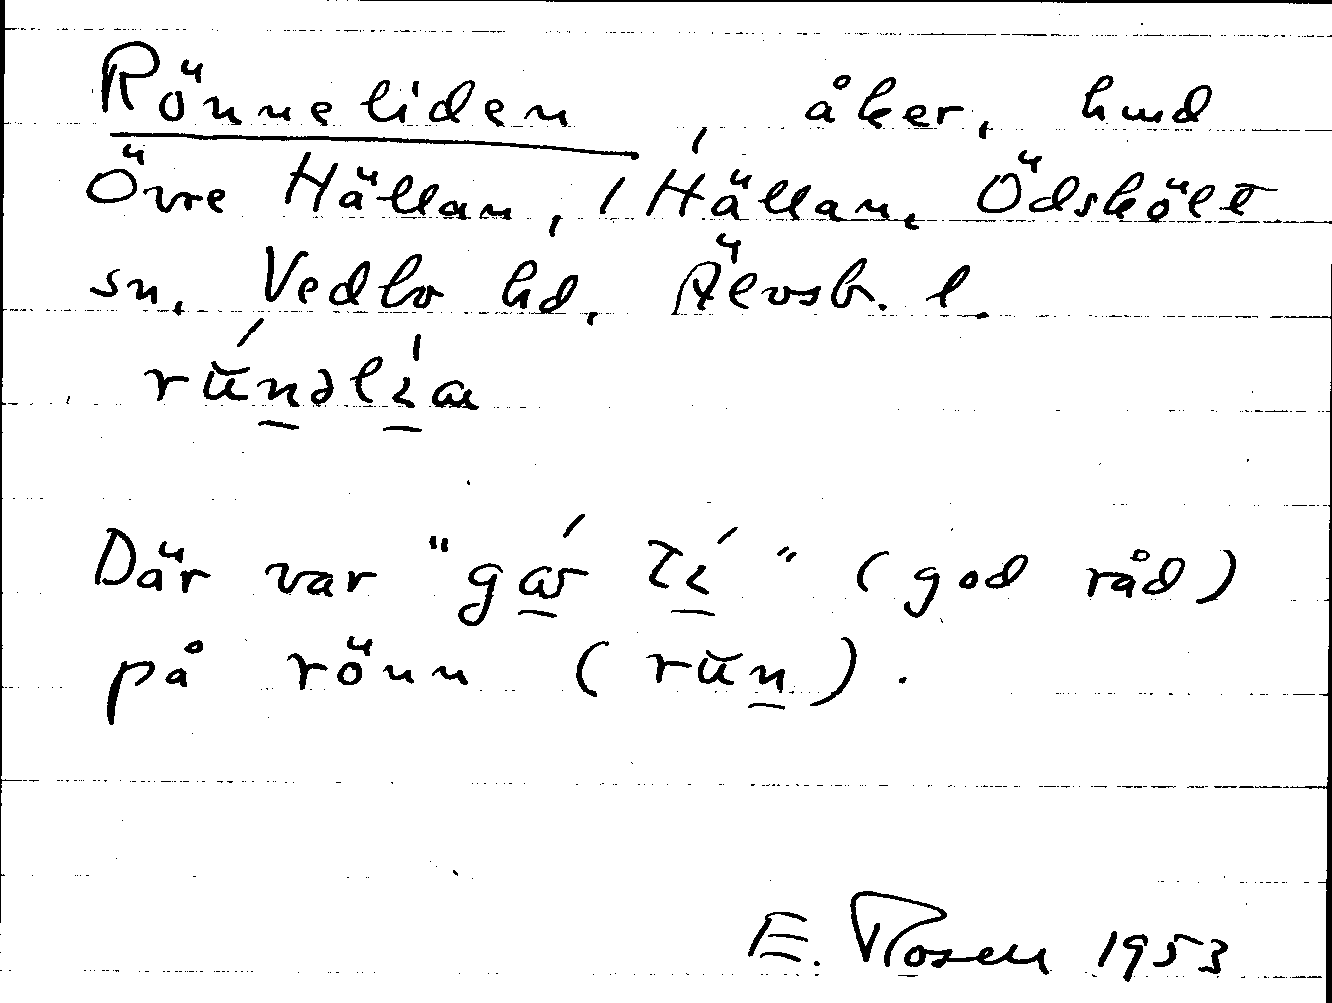 Rönneliden, åker, hmd
Övre Hällan, 1 Hällan, Ödskölt
sn, Vedbo hd, Älvsb. l.
Där var " " (god råd)
på rönn (run).
E. Rosell 1953